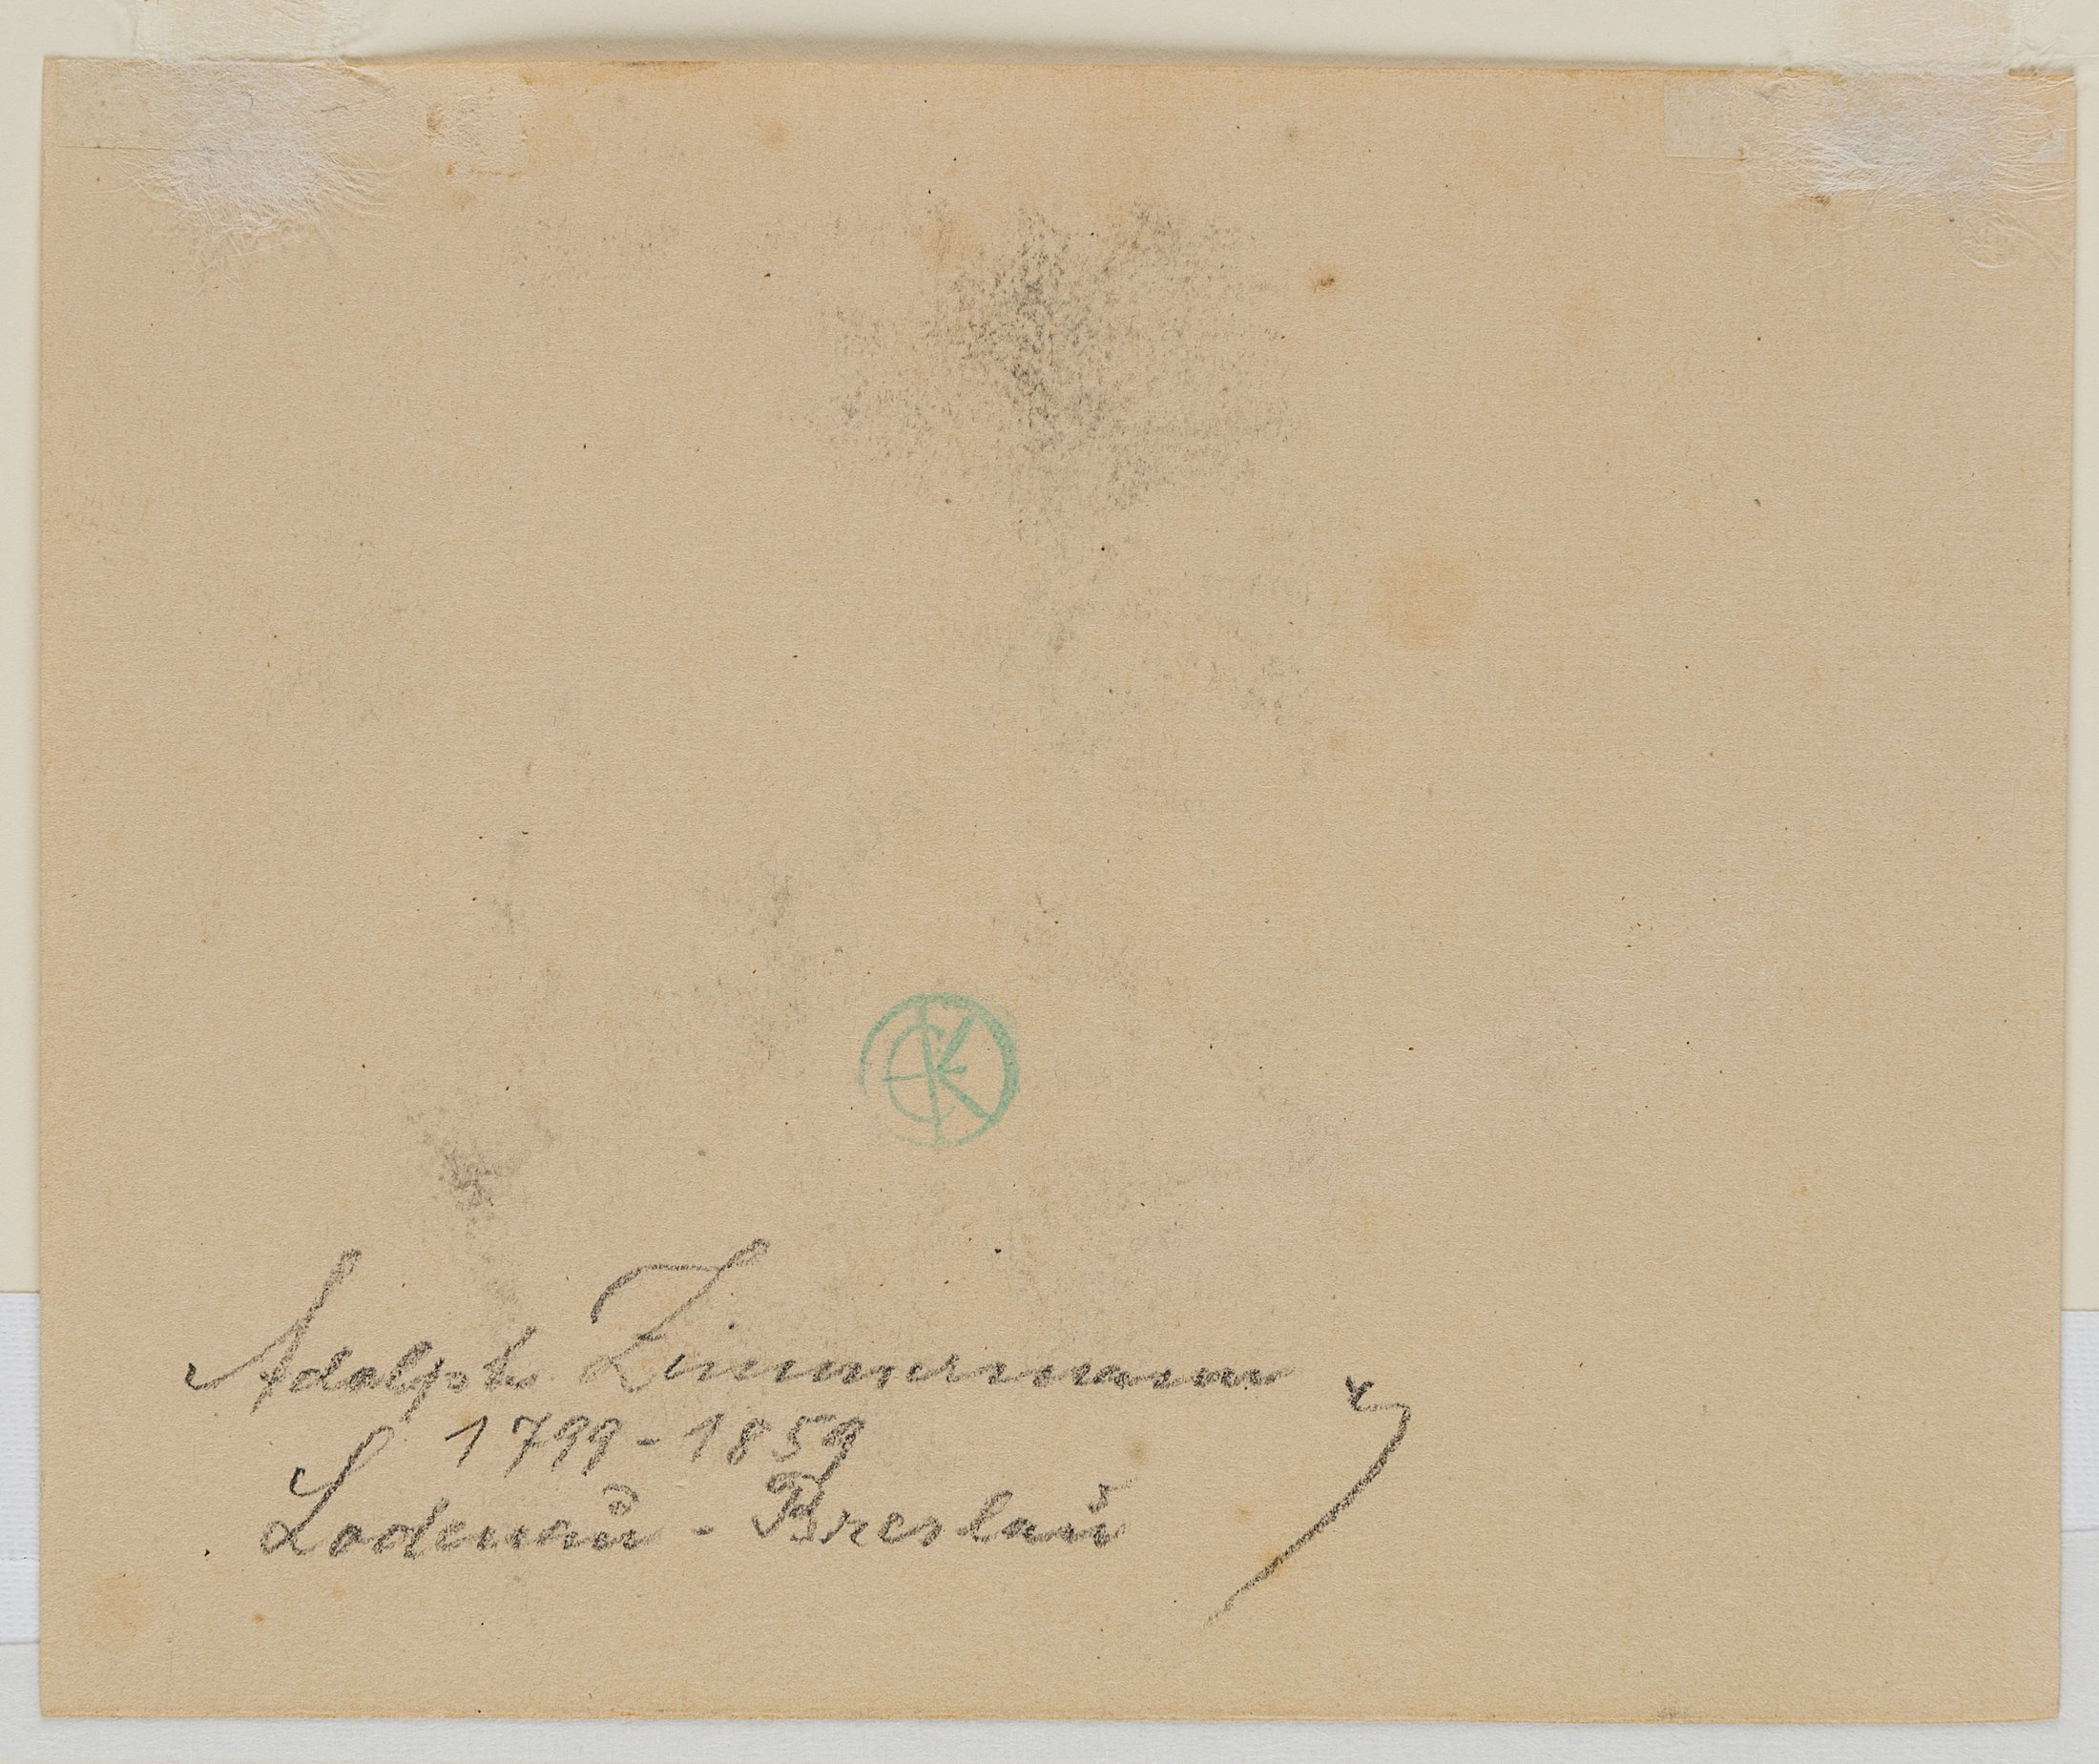 CK
Adolph Zimmermann
1799-1859
Lodenau - Breslau